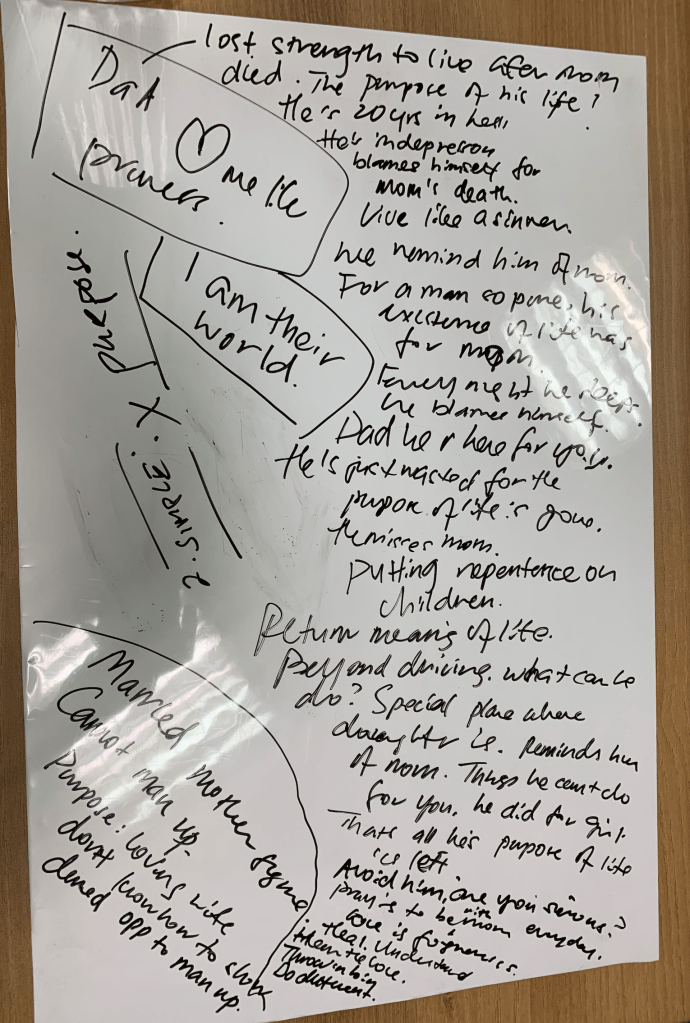 Dad
♡ me like
princess.
lost strength to live after mom
died. The purpose of his life?
He's 20yrs in hell,
He's in depression
blames himself for
mom's death.
Live like a sinner.
We remind him of mom.
For a man so pure, his
existence of life was
for mom.
Every night he sleeps
he blames himself.
Dad here for you.
He's just wasted for the
purpose of life is gone.
He misses mom.
Putting repentence on
children.
Return meaning of life.
Beyond driving. what can he
do? Special place where
daughter is. Reminds him
of mom. Things he can't do
for you, he did for girl.
Thats all his purpose of life
is left
Avoid him, are you serious?
pray is to be with mom everyday.
love is forgiveness.
Heal. Understand
them the love.
Throw in bin
Do document.
I am their
world.
X purpose.
2. SIMPLE.
Married mother
Cannot man up.
Purpose: loving wife
dont know how to show
denied opp to man up.